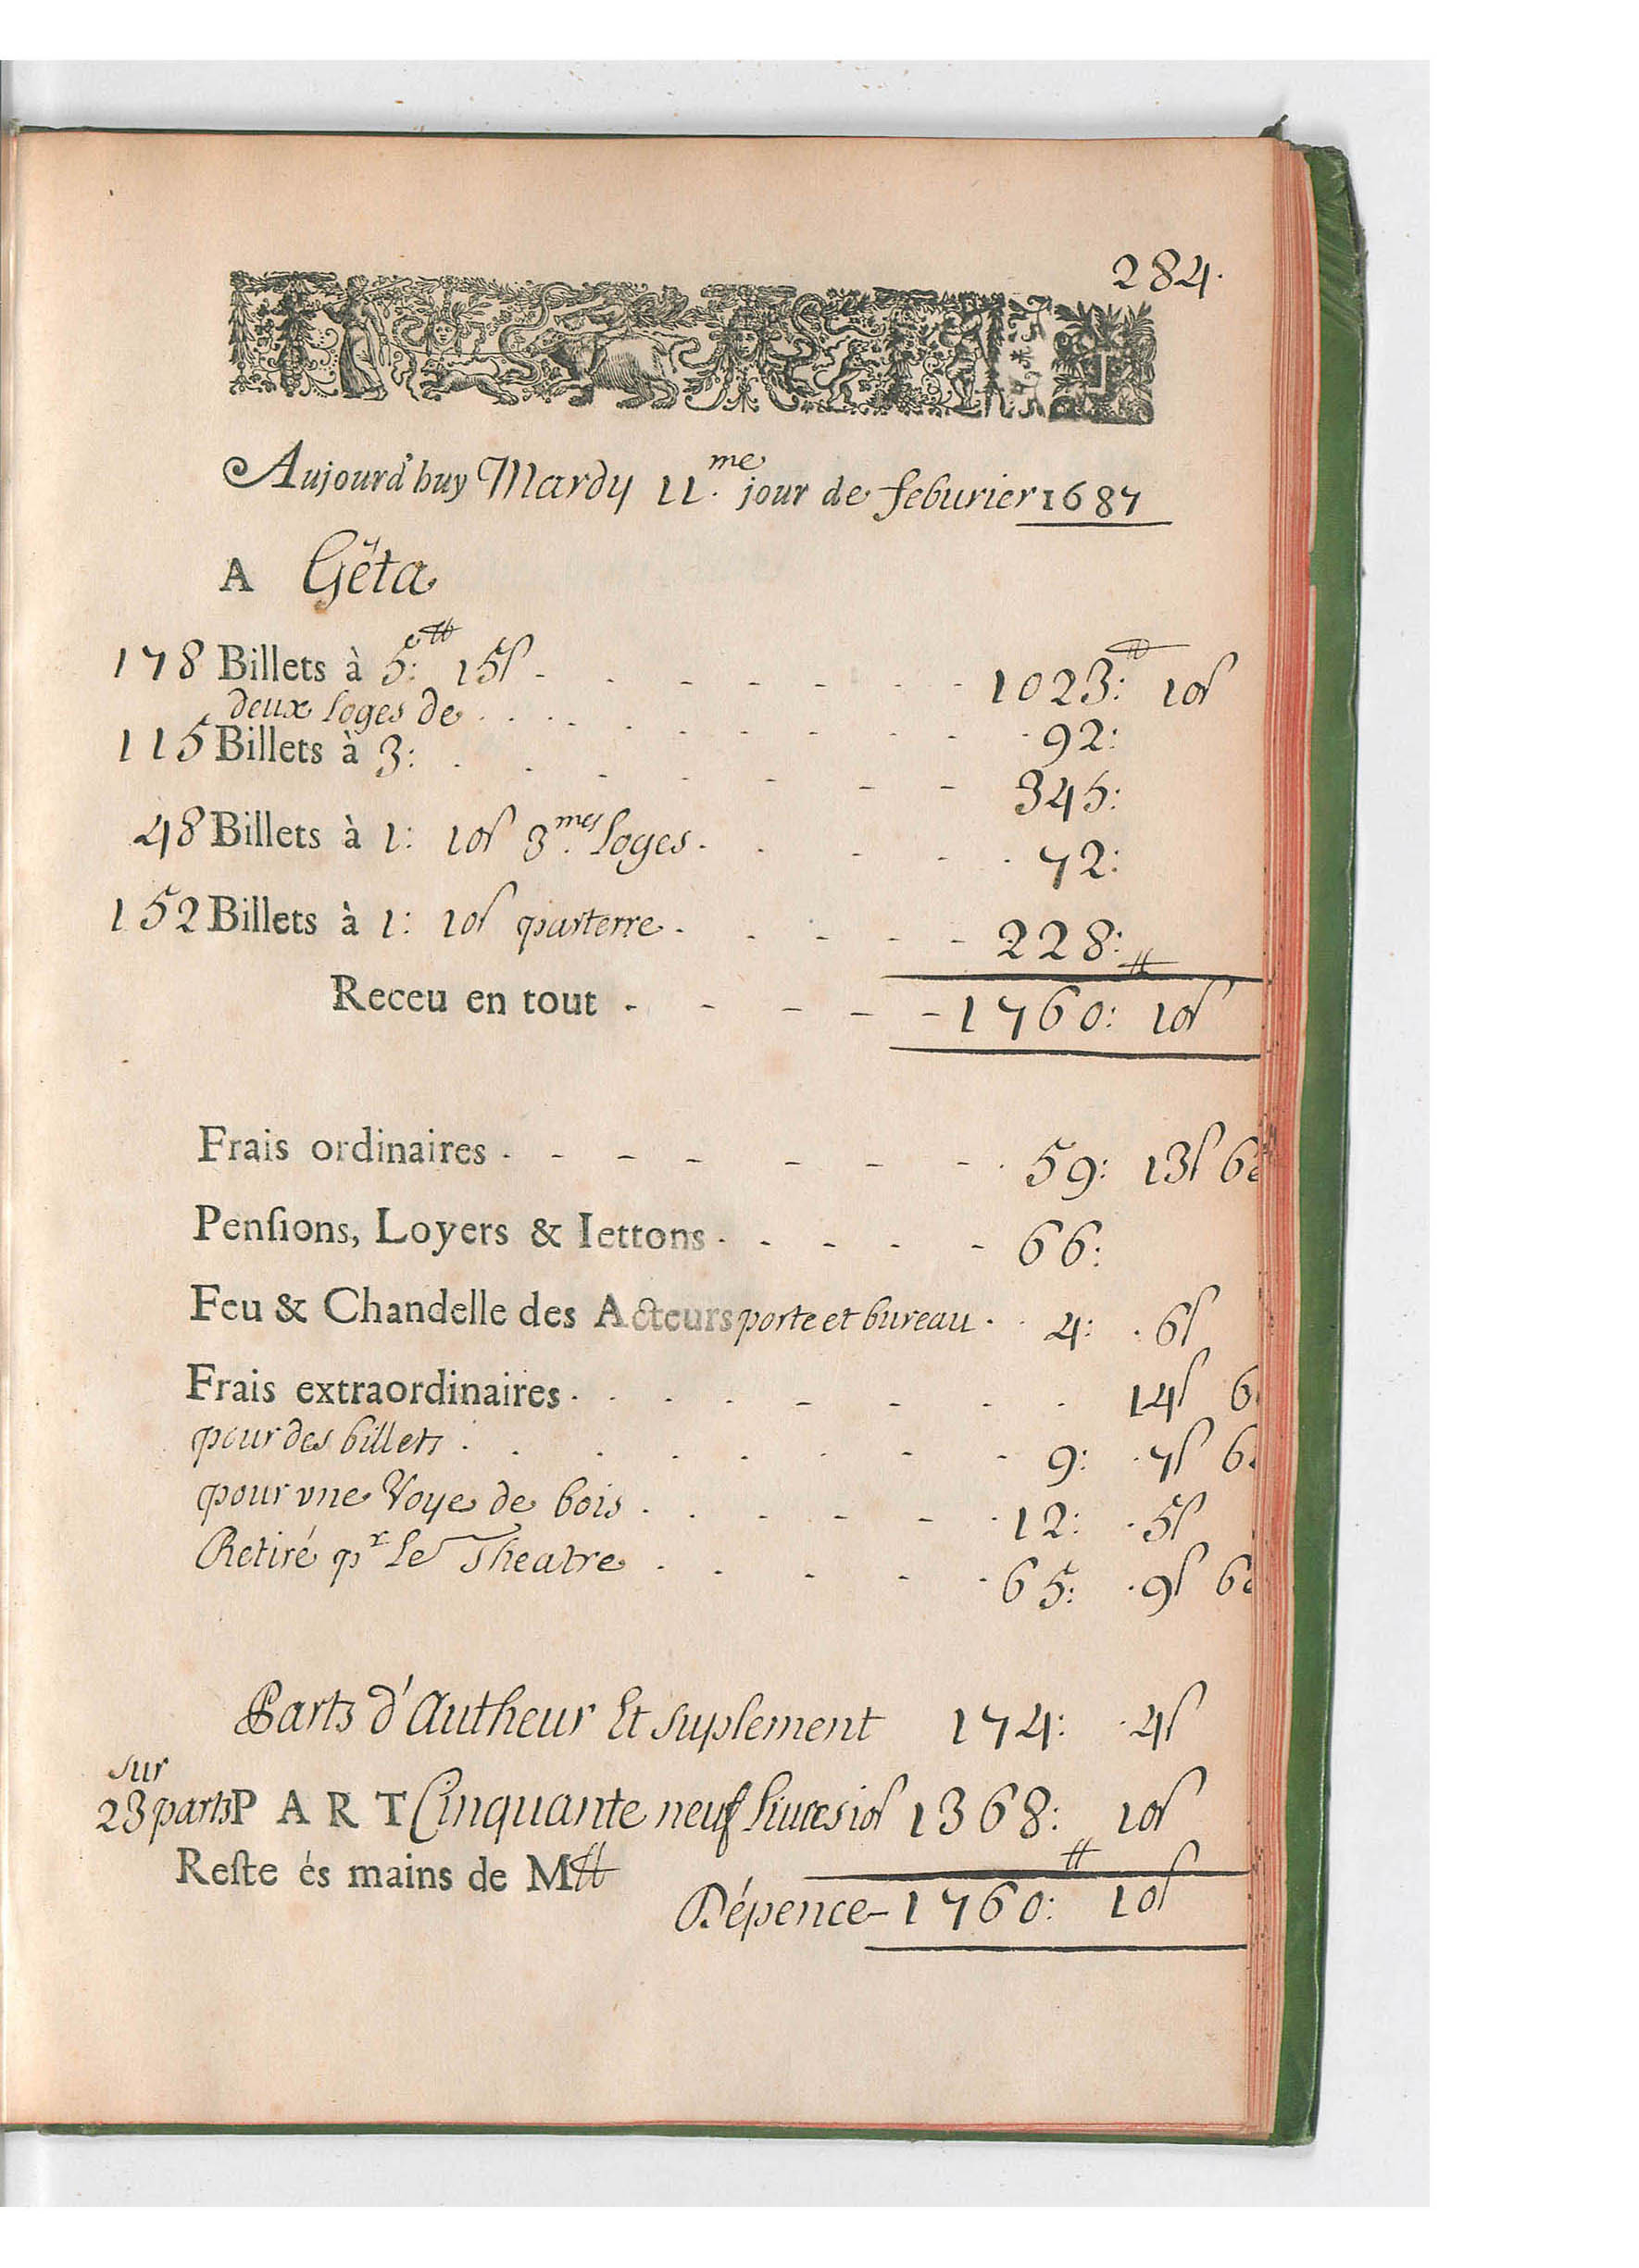 284.
Aujourd'huy Mardy 11.me jour de feburier 1687
A Géta
178 Billets à 5:tt 15s - - - - - - - 1023:tt 10s
deux loges de . . . . . - - - - - 92:
115 Billets à 3: . - - - - - - 345:
48 Billets à 1: 10s 3.mes loges . . - - . 72:
152 Billets à 1: 10s parterre . . - - - 228:
Receu en tout - - - - - 1760:tt 10s
Frais ordinaires . - - - - - - . 59: 13s 6d
Penſions, Loyers & Iettons . - - - - 66:
Feu & Chandelle des Acteurs porte et bureau . . 4: . 6s
Frais extraordinaires . . . . - - - . 14s 6
pour des billets . . . . . . - - 9: . 7s 6
pour vne Voye de bois . . - - - . 12: . 5s
Retiré pr le Theatre . . - - . 65: . 9s 6d
Parts d'Autheur Et suplement 174: . 4s
sur
23 parts PART Cinquante neuf liures 10s 1368: 10s
Reſte és mains de Mtt
Dépence - 1760:tt 10s